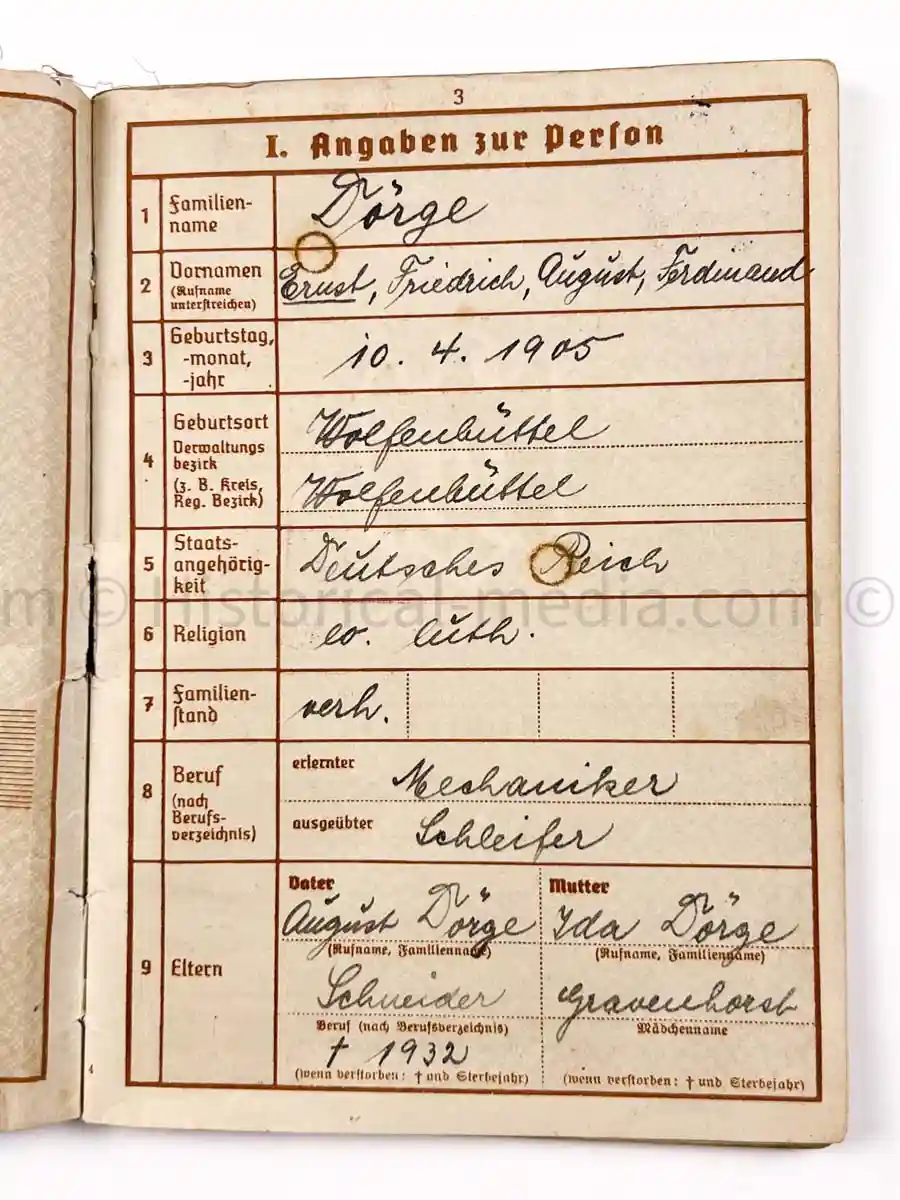 3
I. Angaben zur Person
1 Familien-
name
Dörge
2 Vornamen
(Rufname
unterstreichen)
Ernst, Friedrich, August, Ferdinand
3 Geburtstag,
-monat,
-jahr
10. 4. 1905
4 Geburtsort
Wolfenbüttel
Verwaltungs
bezirk
(z. B. Kreis,
Reg. Bezirk)
Wolfenbüttel
5 Staats-
angehörig-
keit
Deutsches Reich
m © Historical-media.com ©
6 Religion
ev. luth.
7 Familien-
stand
verh.
8 Beruf
(nach
Berufs-
verzeichnis)
erlernter Mechaniker
ausgeübter Schleifer
9 Eltern
Vater
August Dörge
(Rufname, Familienname)
Schneider
Beruf (nach Berufsverzeichnis)
† 1932
(wenn verstorben: † und Sterbejahr)
Mutter
Ida Dörge
(Rufname, Familienname)
Gravenhorst
Mädchenname
(wenn verstorben: † und Sterbejahr)
4